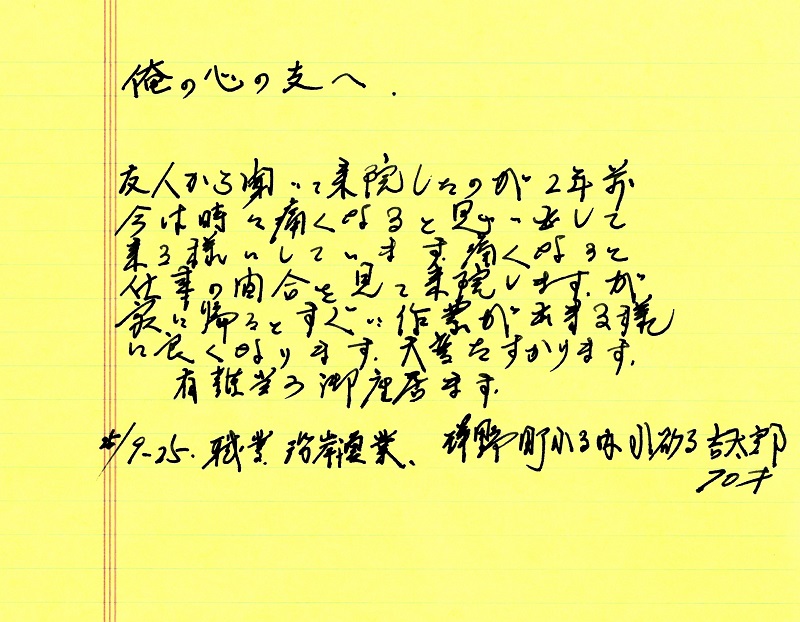 俺の心の支へ.
友人から聞いて来院したのが2年前
今は時々痛くなると思い出して
来る様にしています.痛くなると
仕事の間合を見て来院します.が
家に帰るとすぐに作業が出来る様
に良くなります.大変たすかります.
有難う御座居ます.
25/9-25.職業 沿岸漁業、 町 吉太郎
70才